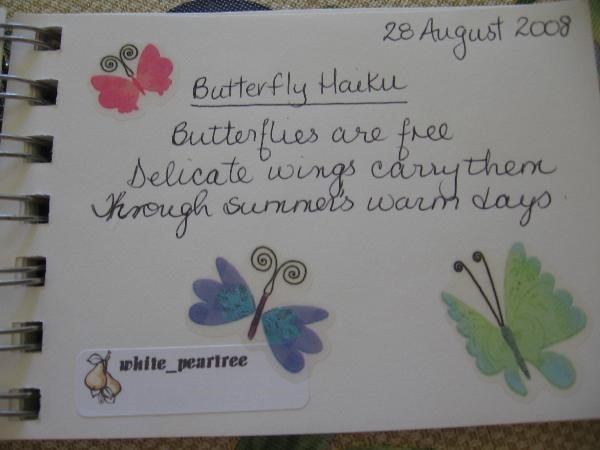 28 August 2008
Butterfly Haiku
Butterflies are free
Delicate wings carry them
Through summer's warm days
white_peartree